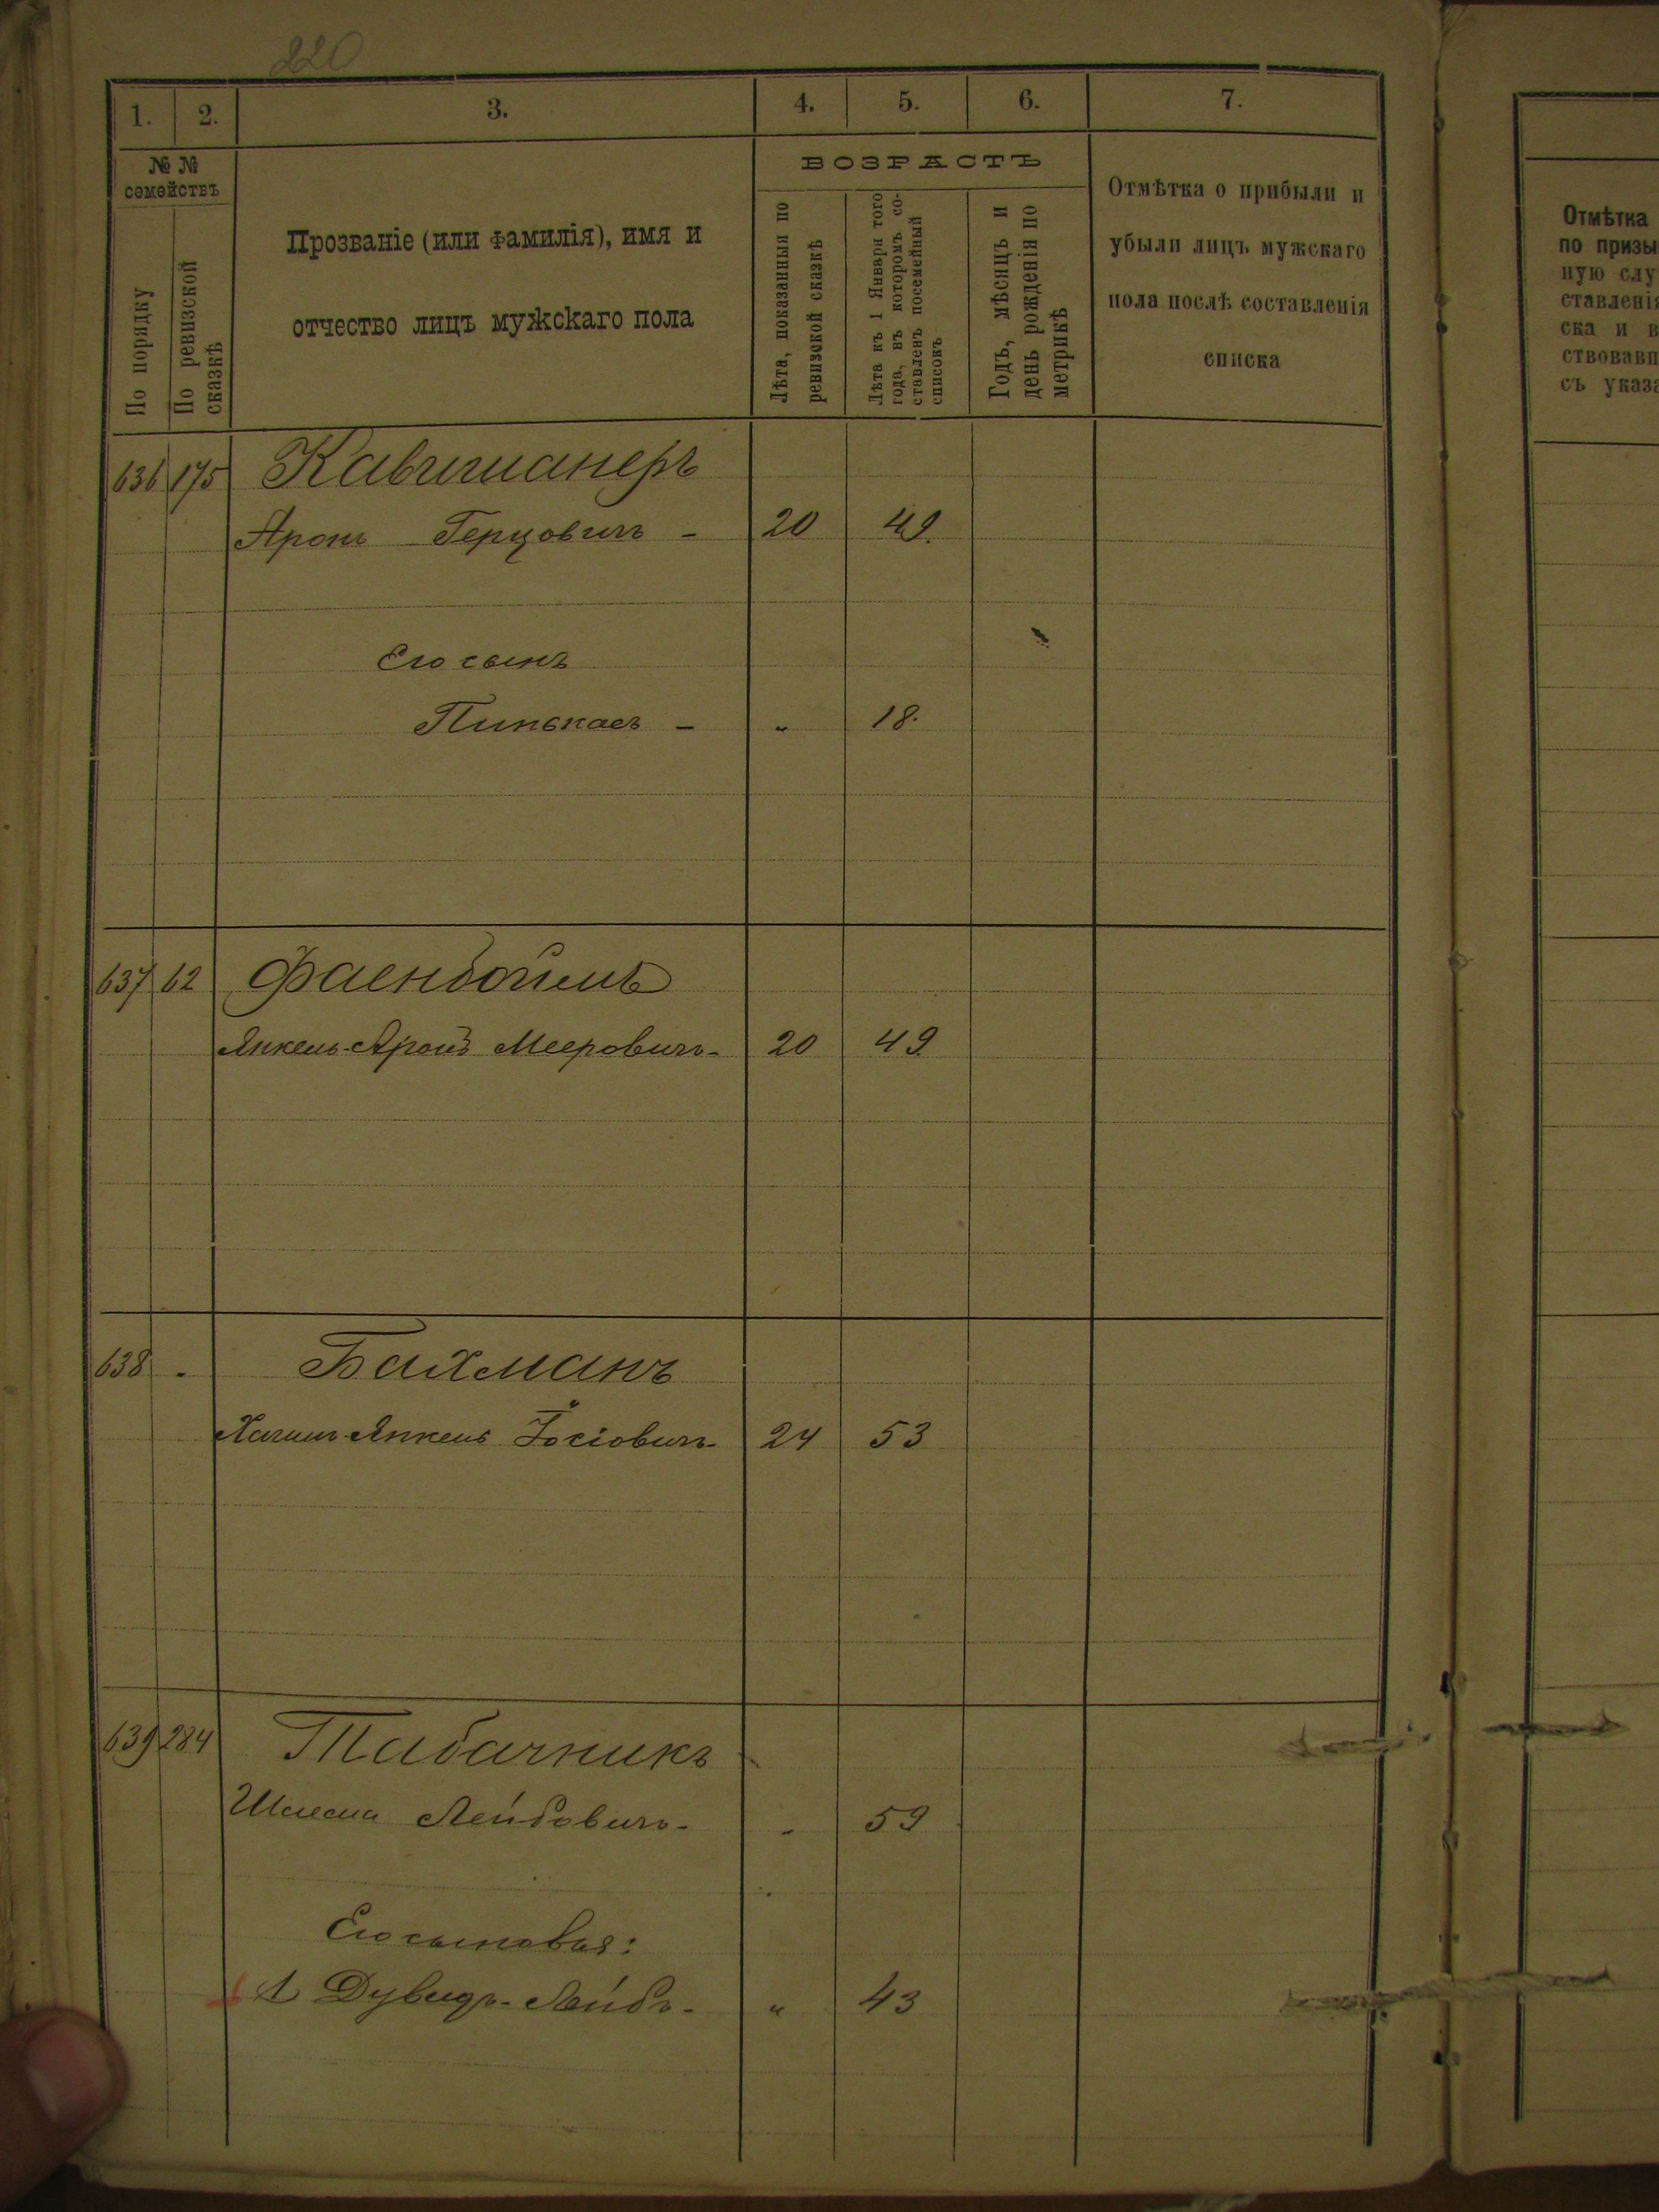 220
1. 2. 3. 4. 5. 6. 7.
№ №
семействъ
По порядку
По ревизской
сказкѣ
Прозваніе (или фамилія), имя и
отчество лицъ мужскаго пола
ВОЗРАСТЪ
Лѣта, показанныя по
ревизской сказкѣ
Лѣта къ 1 Января того
года, въ которомъ со-
ставленъ посемейный
списокъ
Годъ, мѣсяцъ и
день рожденія по
метрикѣ
Отмѣтка о прибыли и
убыли лицъ мужскаго
пола послѣ составленія
списка
Отмѣтка
по призы
ную слу
ставленія
ска и в
ствовавп
съ указа
636 175
Аронъ Герцовичъ - 20 49.
Его сынъ
Пинькасъ - " 18.
637 62 Фаенбоймъ
Янкель-Аронъ Мееровичъ- 20 49
638 - Бахманъ
Хаимъ-Янкель Іосіовичъ- 24 53
639 284 Табачникъ
Шлема Лейбовичъ- - 59
Его сыновья:
1 Дувидъ-Лейбъ- " 43